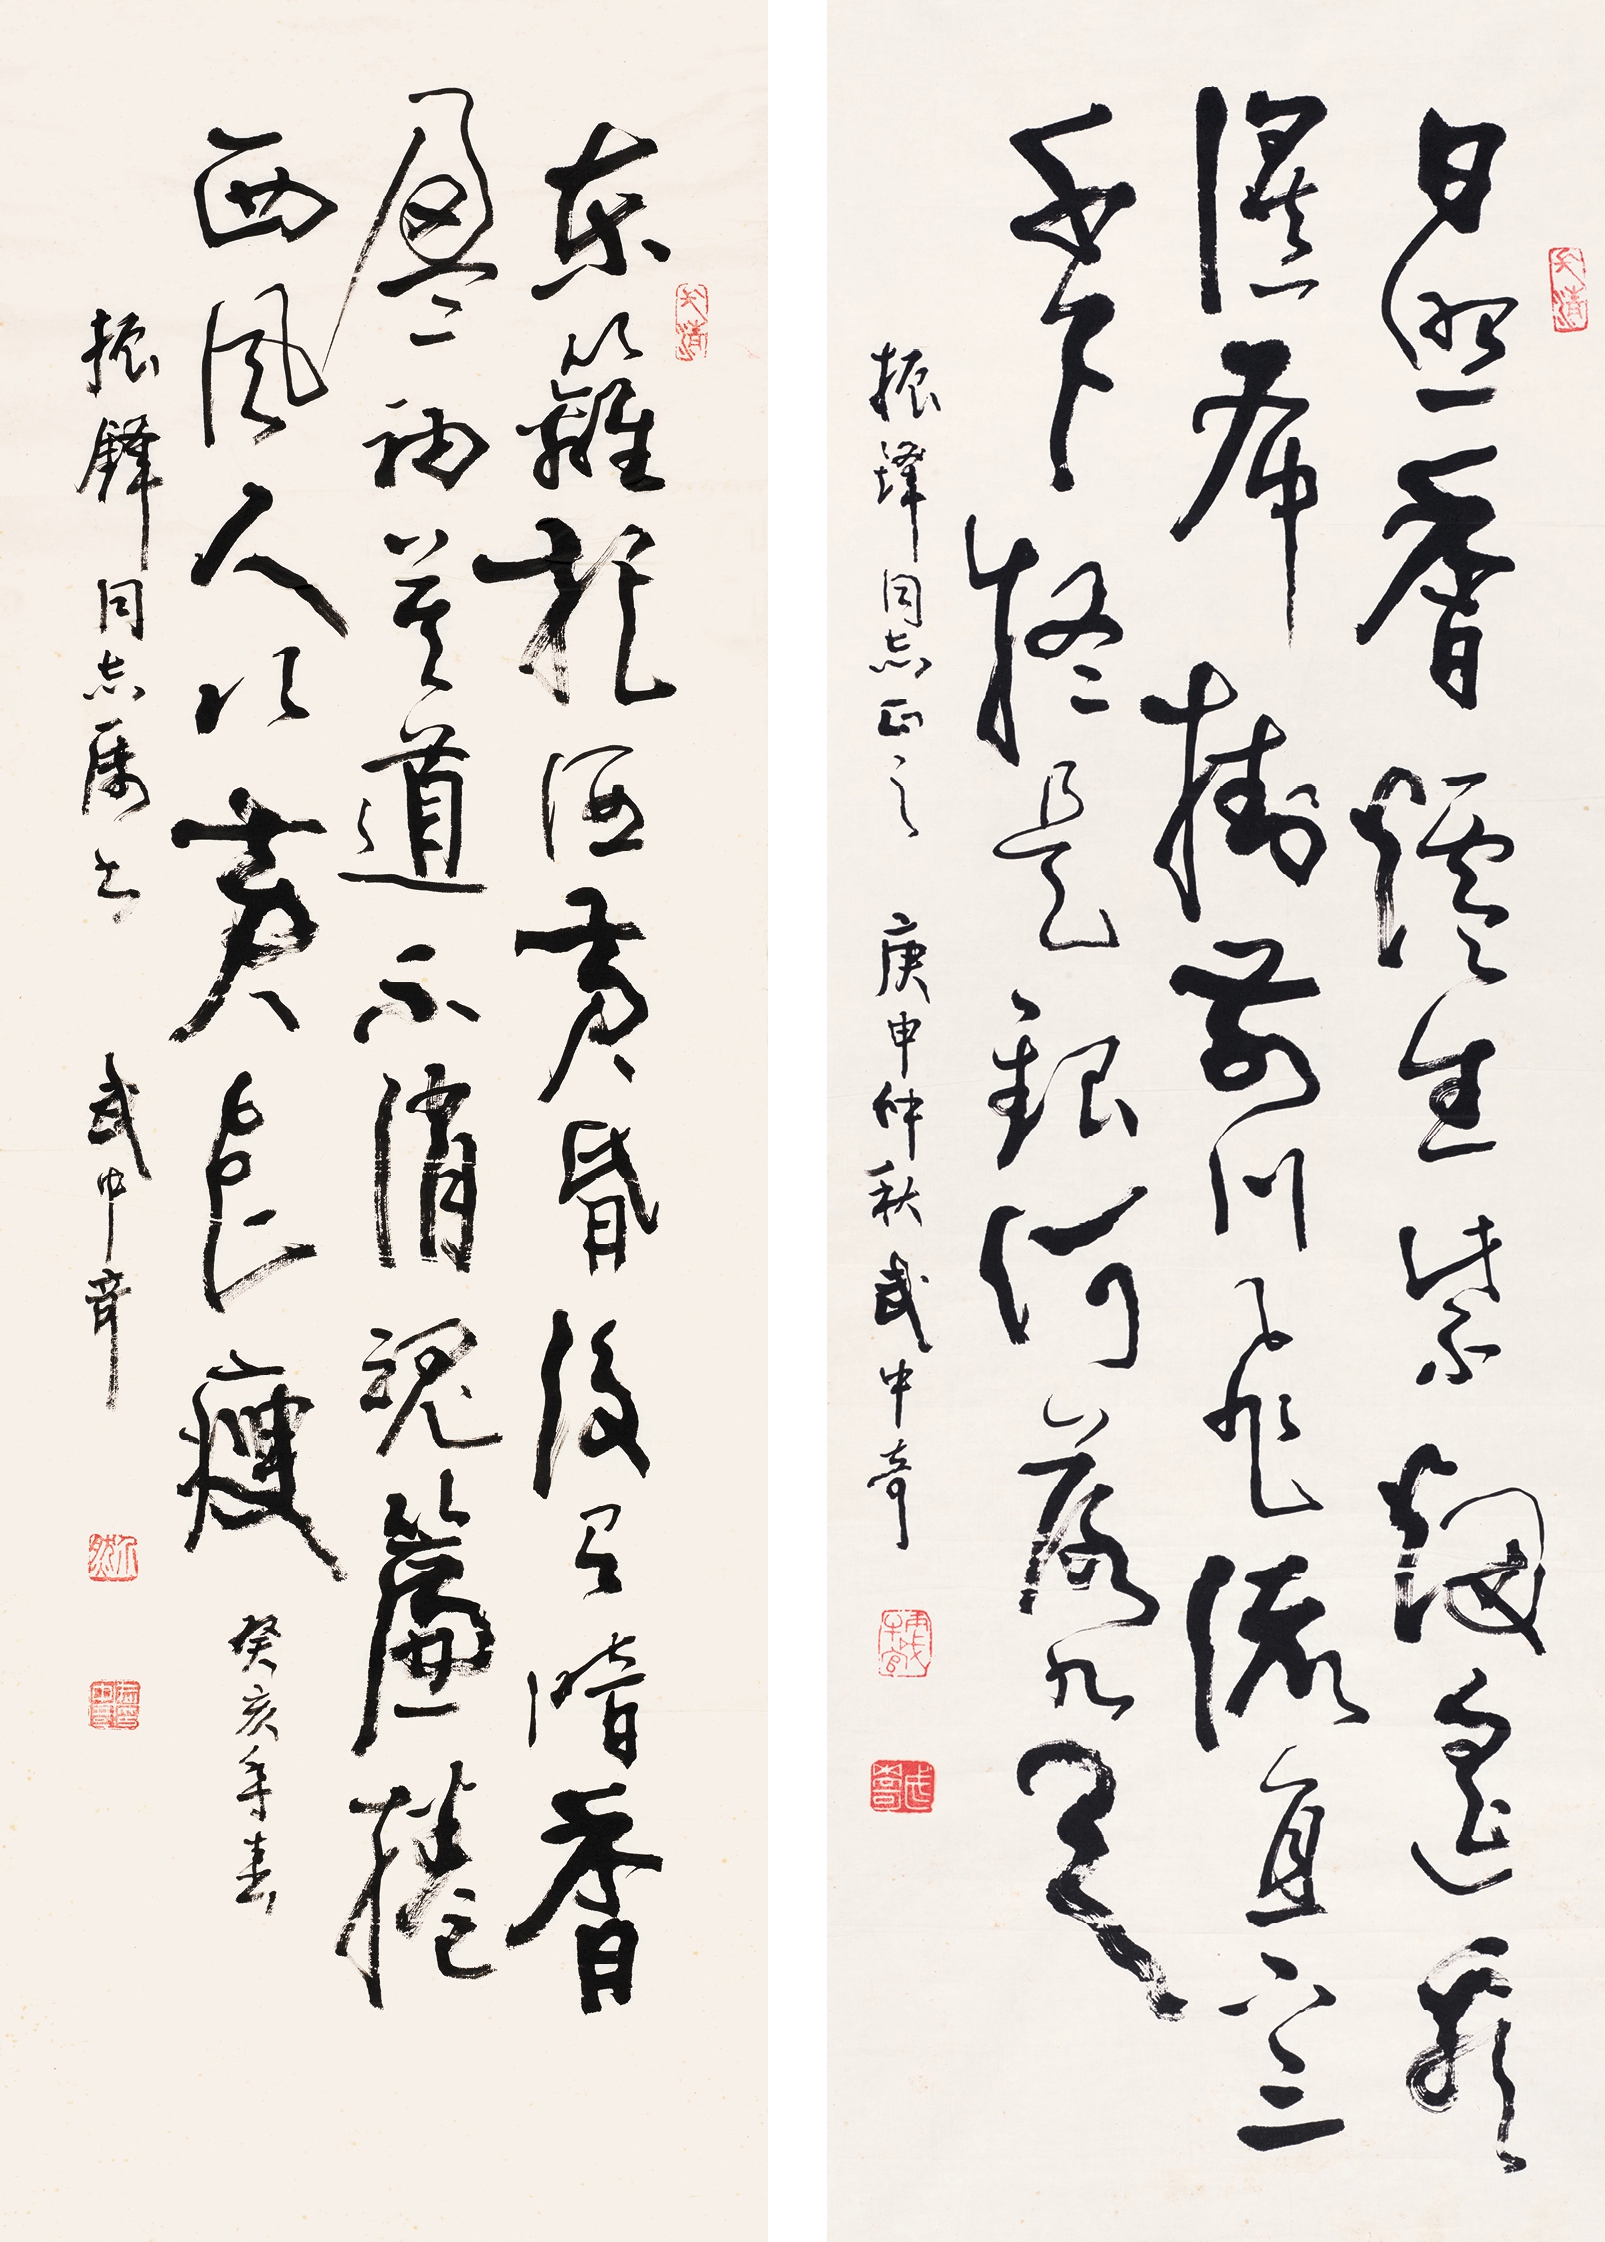 日照香爐生紫烟遥看
瀑布掛前川飛流直下三
千尺疑是銀河落九天
振鐸同志正之 庚申仲秋武中奇
東籬把酒黄昏後有暗香
盈袖莫道不消魂簾捲
西風人比黄花瘦 癸亥年春
振鐸同志屬書 武中奇